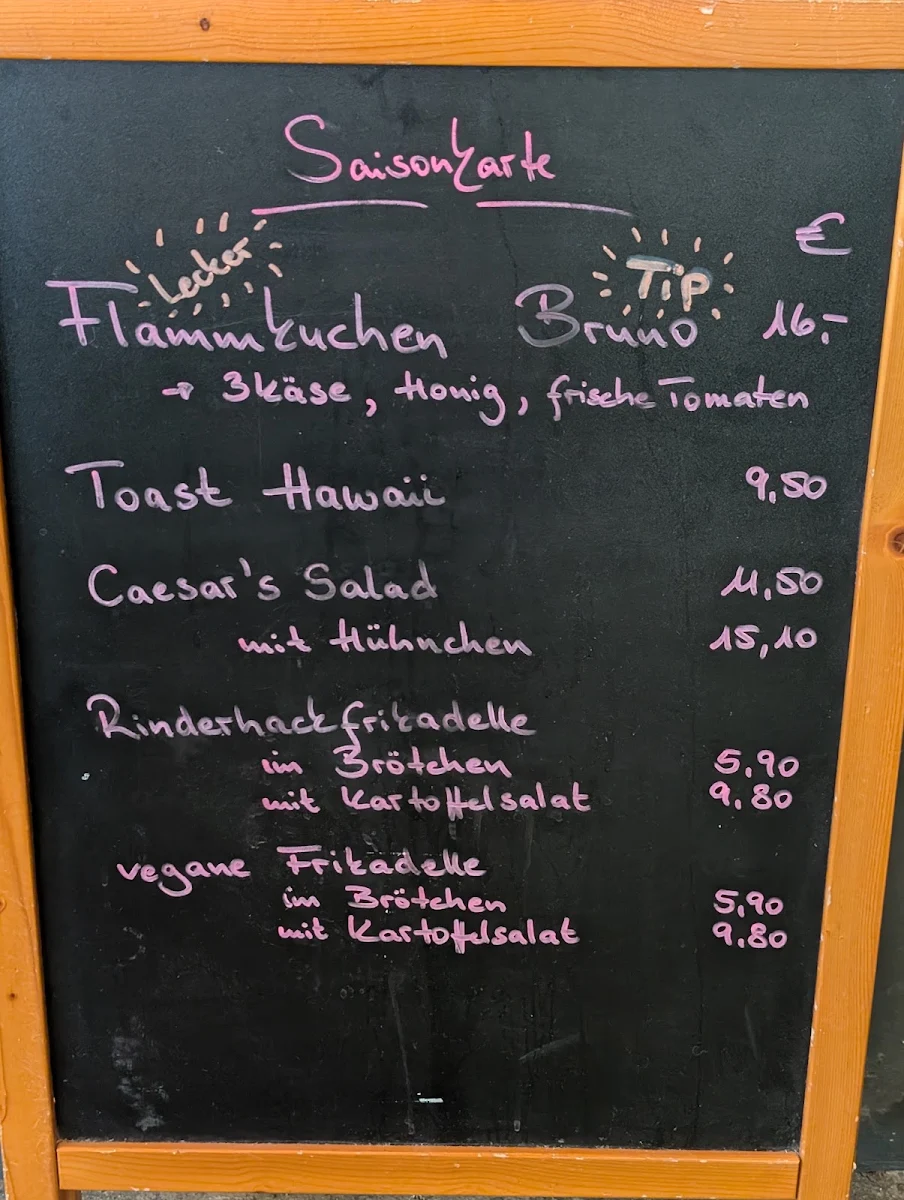 Saisonkarte
€
Lecker Tip
Flammkuchen Bruno 16,-
→ 3käse, Honig, frische Tomaten
Toast Hawaii 9,50
Caesar's Salad 11,50
mit Hühnchen 15,10
Rinderhackfrikadelle
im Brötchen 5,90
mit Kartoffelsalat 9,80
vegane Frikadelle
im Brötchen 5,90
mit Kartoffelsalat 9,80